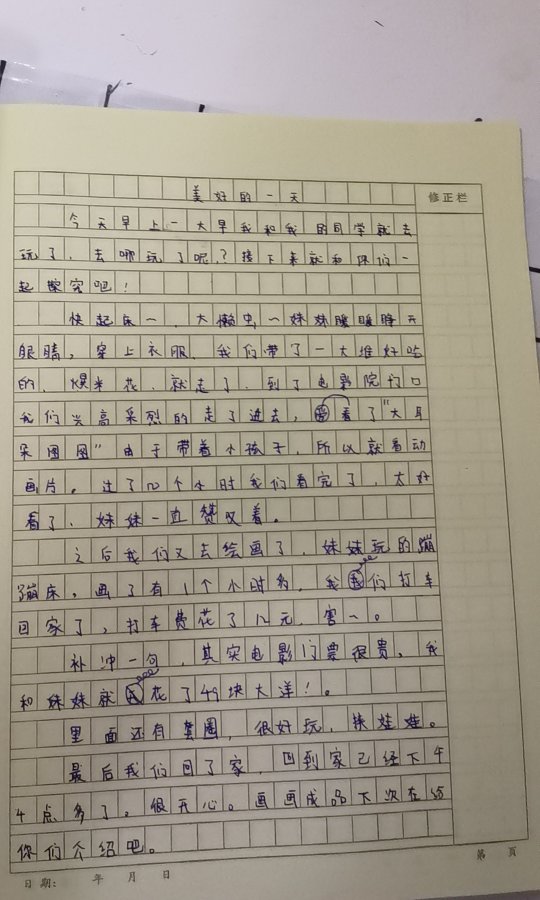 美好的一天
修正栏
今天早上一大早我和我的同学就去
玩了、去哪玩了呢,?接下来就和你们一
起探究吧!
快起床一、大懒虫,一妹妹朦朦睁开
眼睛,穿上衣服、我们带了一大堆好吃
的、爆米花、就走了、到了电影院门口
我们兴高采烈的走了进去,看了"大耳
朵图图"由于带着个孩子、所以就看动
画片。过了几个小时我们看完了,太好
看了、妹妹一直赞叹着。
之后我们又去绘画了、妹妹玩的蹦
蹦床,画了有1个小时多,我们打车
回家了,打车费花了几元、害一。
补冲一句,其实电影门票很贵,我
和妹妹就花了49块大洋!。
里面还有套圈,很好玩,娃娃。
最后我们回了家,回到家已经下午
4点多了。很开心。画画成品下次在给
你们介绍吧。
第 页
日期: 年 月 日